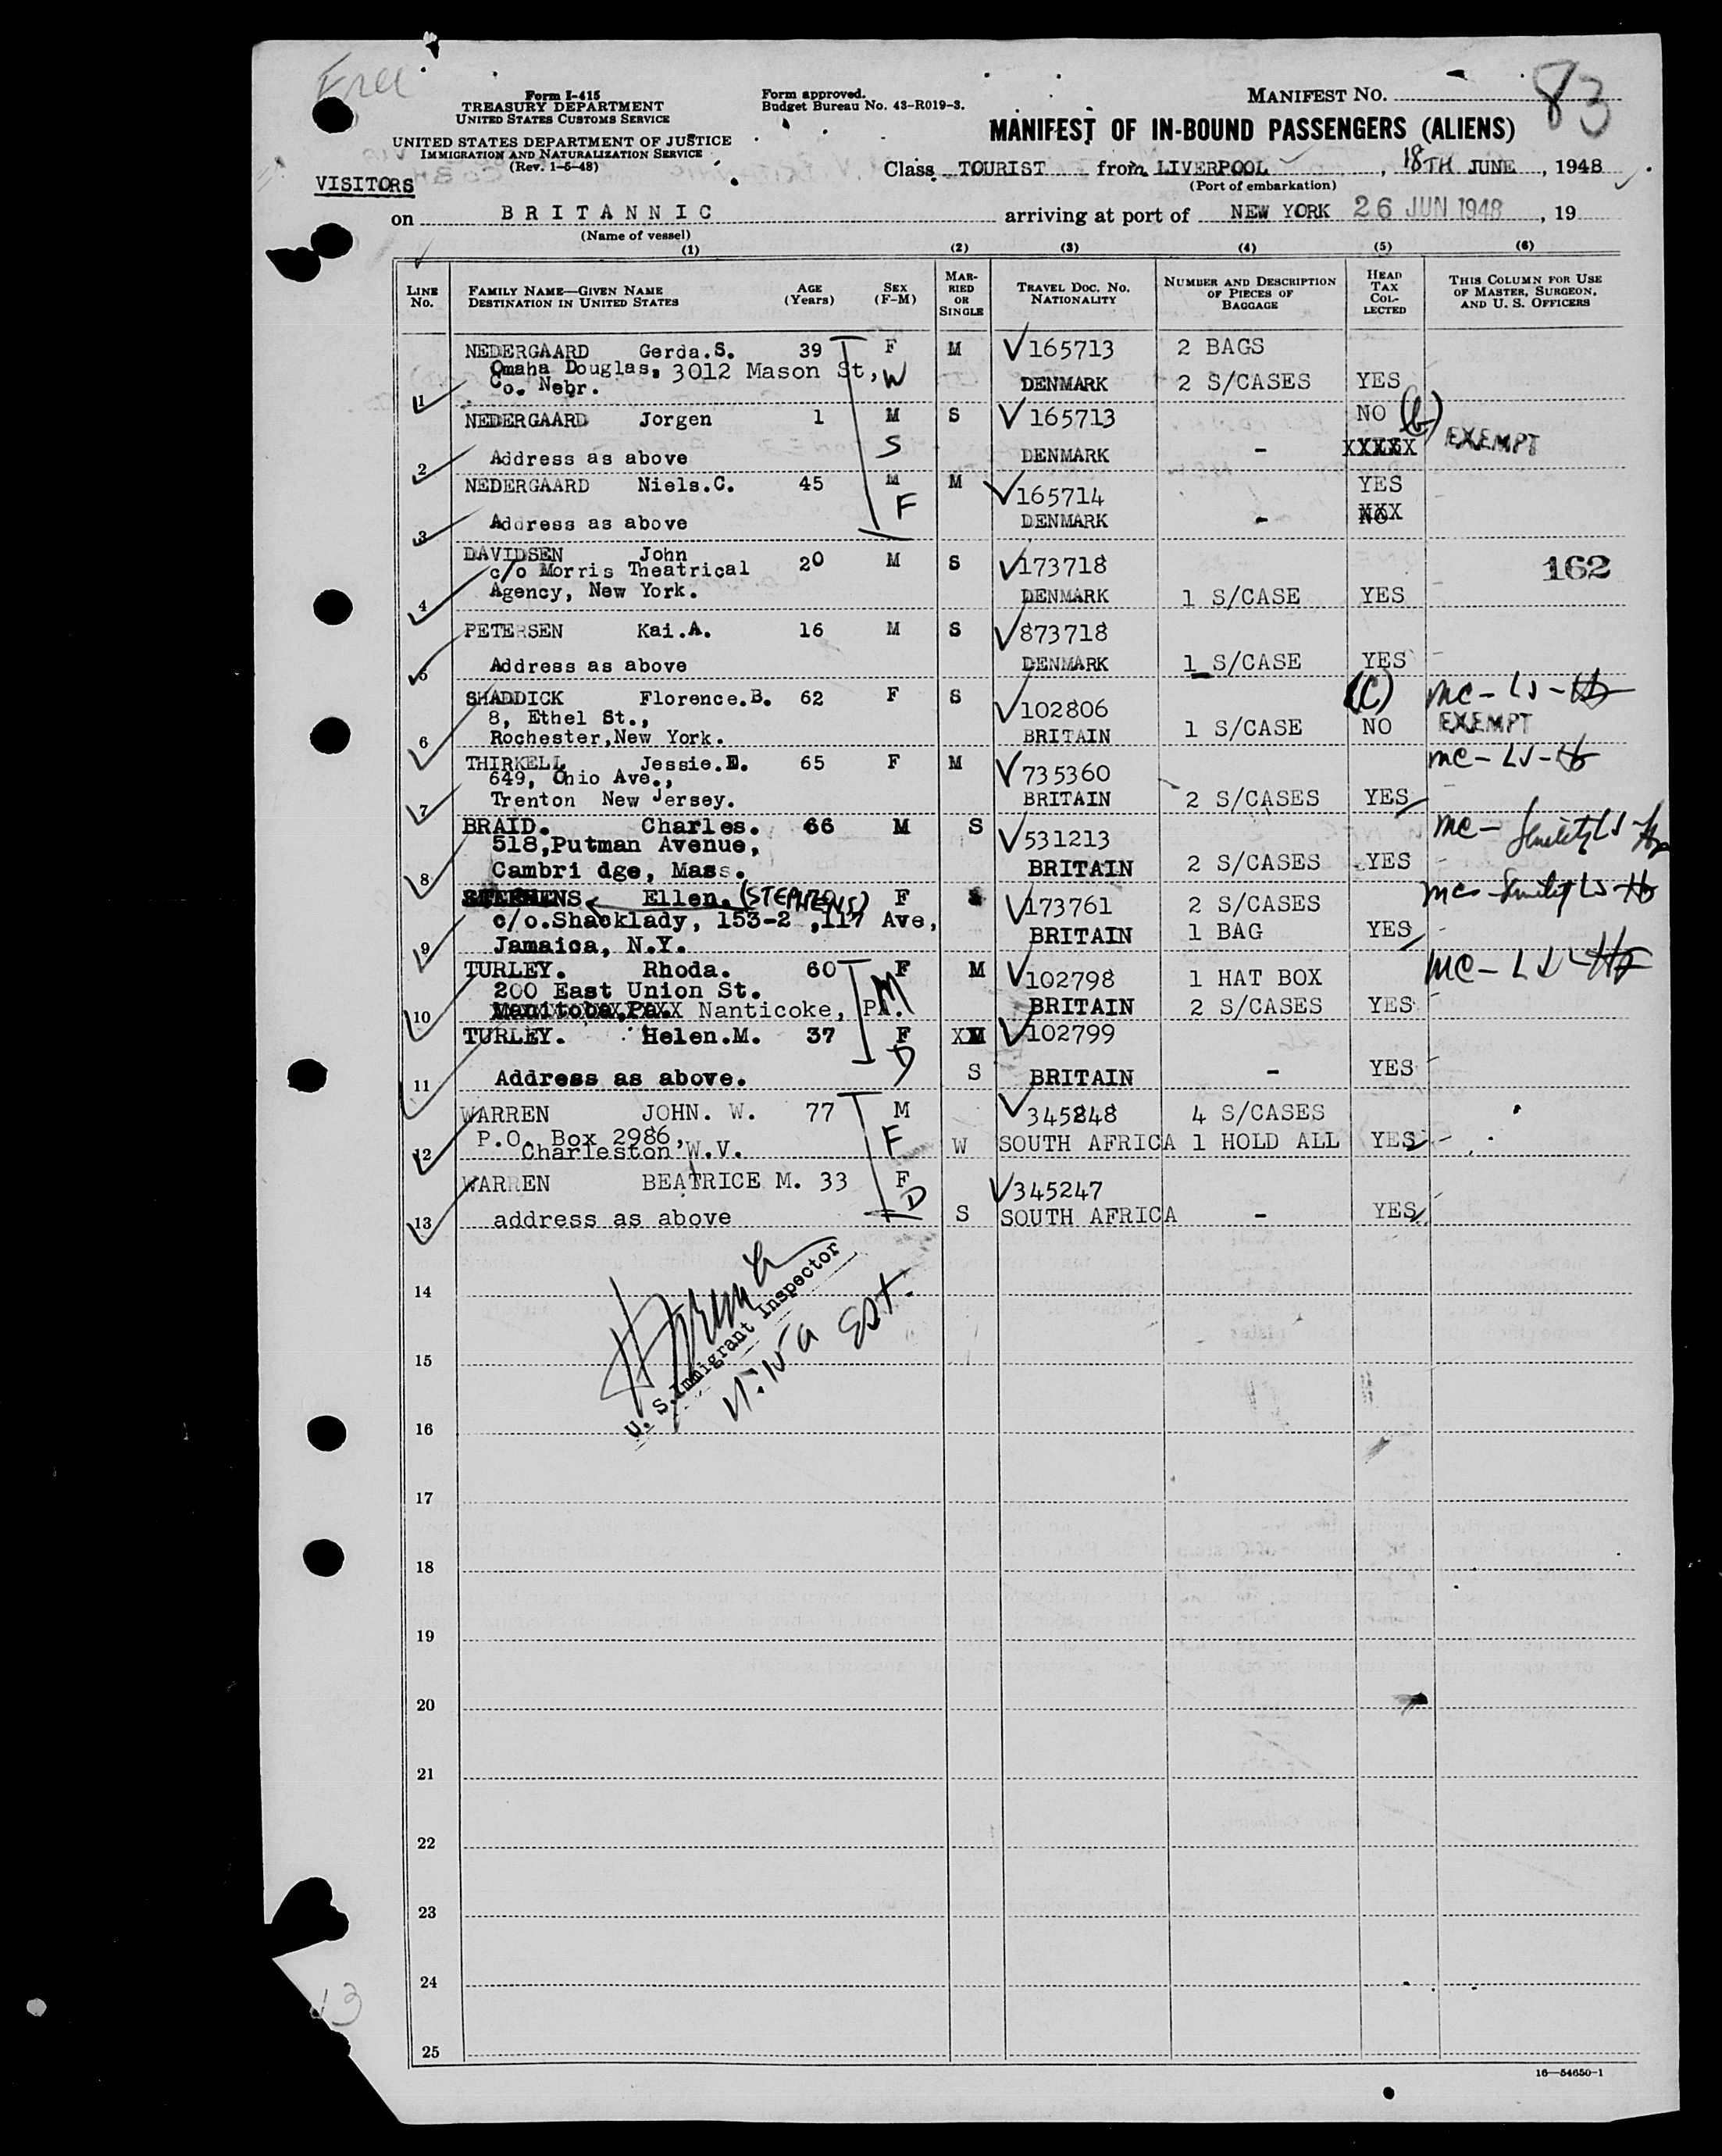 Free
Form I-415
TREASURY DEPARTMENT
UNITED STATES CUSTOMS SERVICE
UNITED STATES DEPARTMENT OF JUSTICE
IMMIGRATION AND NATURALIZATION SERVICE
(Rev. 1-5-48)
VISITORS
Form approved.
Budget Bureau No. 43-R019-3.
MANIFEST No. 83
MANIFEST OF IN-BOUND PASSENGERS (ALIENS)
Class TOURIST from LIVERPOOL, 18TH JUNE, 1948
(Port of embarkation)
on BRITANNIC arriving at port of NEW YORK 26 JUN 1948, 19
(Name of vessel)
(1) (2) (3) (4) (5) (6)
LINE No. FAMILY NAME—GIVEN NAME DESTINATION IN UNITED STATES AGE (Years) SEX (F-M) MARRIED OR SINGLE TRAVEL DOC. NO. NATIONALITY NUMBER AND DESCRIPTION OF PIECES OF BAGGAGE HEAD TAX COLLECTED THIS COLUMN FOR USE OF MASTER, SURGEON, AND U. S. OFFICERS
NEDERGAARD Gerda.S. 39 F M 165713 2 BAGS
Omaha Douglas, 3012 Mason St, W
1 Co. Nebr. DENMARK 2 S/CASES YES
NEDERGAARD Jorgen 1 M S 165713 NO (b) EXEMPT
S
2 Address as above DENMARK - XXXXX
NEDERGAARD Niels.C. 45 M M 165714 YES
F
3 Address as above DENMARK - XXX
DAVIDSEN John 20 M S 173718 162
c/o Morris Theatrical
4 Agency, New York. DENMARK 1 S/CASE YES
PETERSEN Kai.A. 16 M S 873718
5 Address as above DENMARK 1 S/CASE YES
SHADDICK Florence.B. 62 F S 102806 (C) mc - LJ -
8, Ethel St.,
6 Rochester,New York. BRITAIN 1 S/CASE NO EXEMPT
THIRKELL Jessie.E. 65 F M 735360 mc - LJ -
649, Ohio Ave.,
7 Trenton New Jersey. BRITAIN 2 S/CASES YES
BRAID. Charles. 66 M S 531213 mc - LJ -
518,Putman Avenue,
8 Cambri dge, Mass. BRITAIN 2 S/CASES YES
Ellen. (STEPHENS) F 173761 2 S/CASES mc - LJ -
c/o.Shacklady, 153-2 ,117 Ave,
9 Jamaica, N.Y. BRITAIN 1 BAG YES
TURLEY. Rhoda. 60 F M 102798 1 HAT BOX mc - LJ -
200 East Union St. M
10 Manitoba,Pa.XXX Nanticoke, PA. BRITAIN 2 S/CASES YES
TURLEY. Helen.M. 37 F XM 102799
D
11 Address as above. S BRITAIN - YES
WARREN JOHN. W. 77 M 345848 4 S/CASES
P.O. Box 2986, F
12 Charleston W.V. W SOUTH AFRICA 1 HOLD ALL YES
WARREN BEATRICE M. 33 F 345247
D
13 address as above S SOUTH AFRICA - YES
U. S. Immigrant Inspector
14
15
16
17
18
19
20
21
22
23
24
25
13
16—54650-1